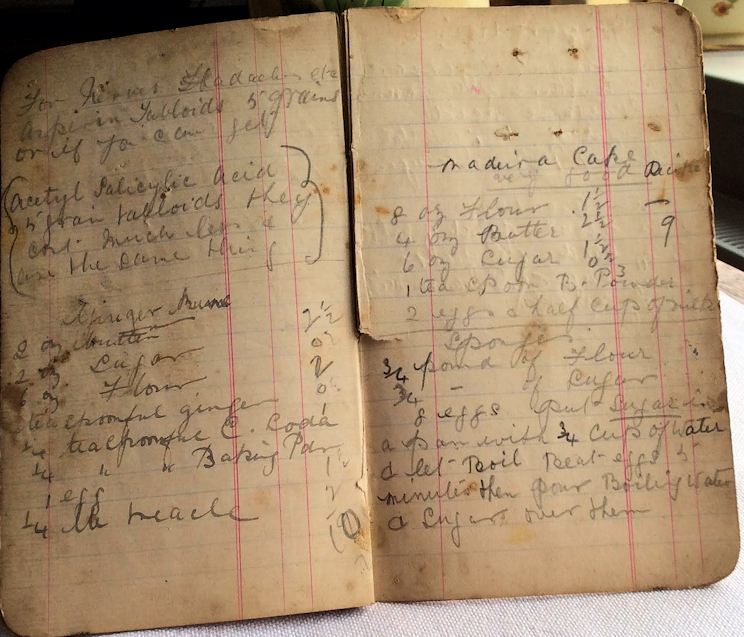 For Nerves Headaches etc
Aspirin Tabloids 5 grains
or if you can get
(Acetyl Salicylic Acid
5 grain tabloids they
cost much less &
are the same thing)
Ginger Nuns
2 oz Butter 2½
2 oz Sugar 0
6 oz Flour 2
teaspoonful ginger 0
¼ teaspoonful C. Soda 1
¼ " " Baking Pdr
1 egg 1½
¼ lb treacle 2
10
Madeira Cake
very good
8 oz Flour 1½
4 oz Butter 2½ 9
6 oz Sugar 1½
1 tea spoon B. Powder
2 eggs & half Cup of milk
Sponge
¾ pound of Flour
¾ - of Sugar
8 eggs put Sugar in
a pan with ¾ Cup of Water
& let Boil Beat eggs 5
minutes then pour Boiling Water
& Sugar over them